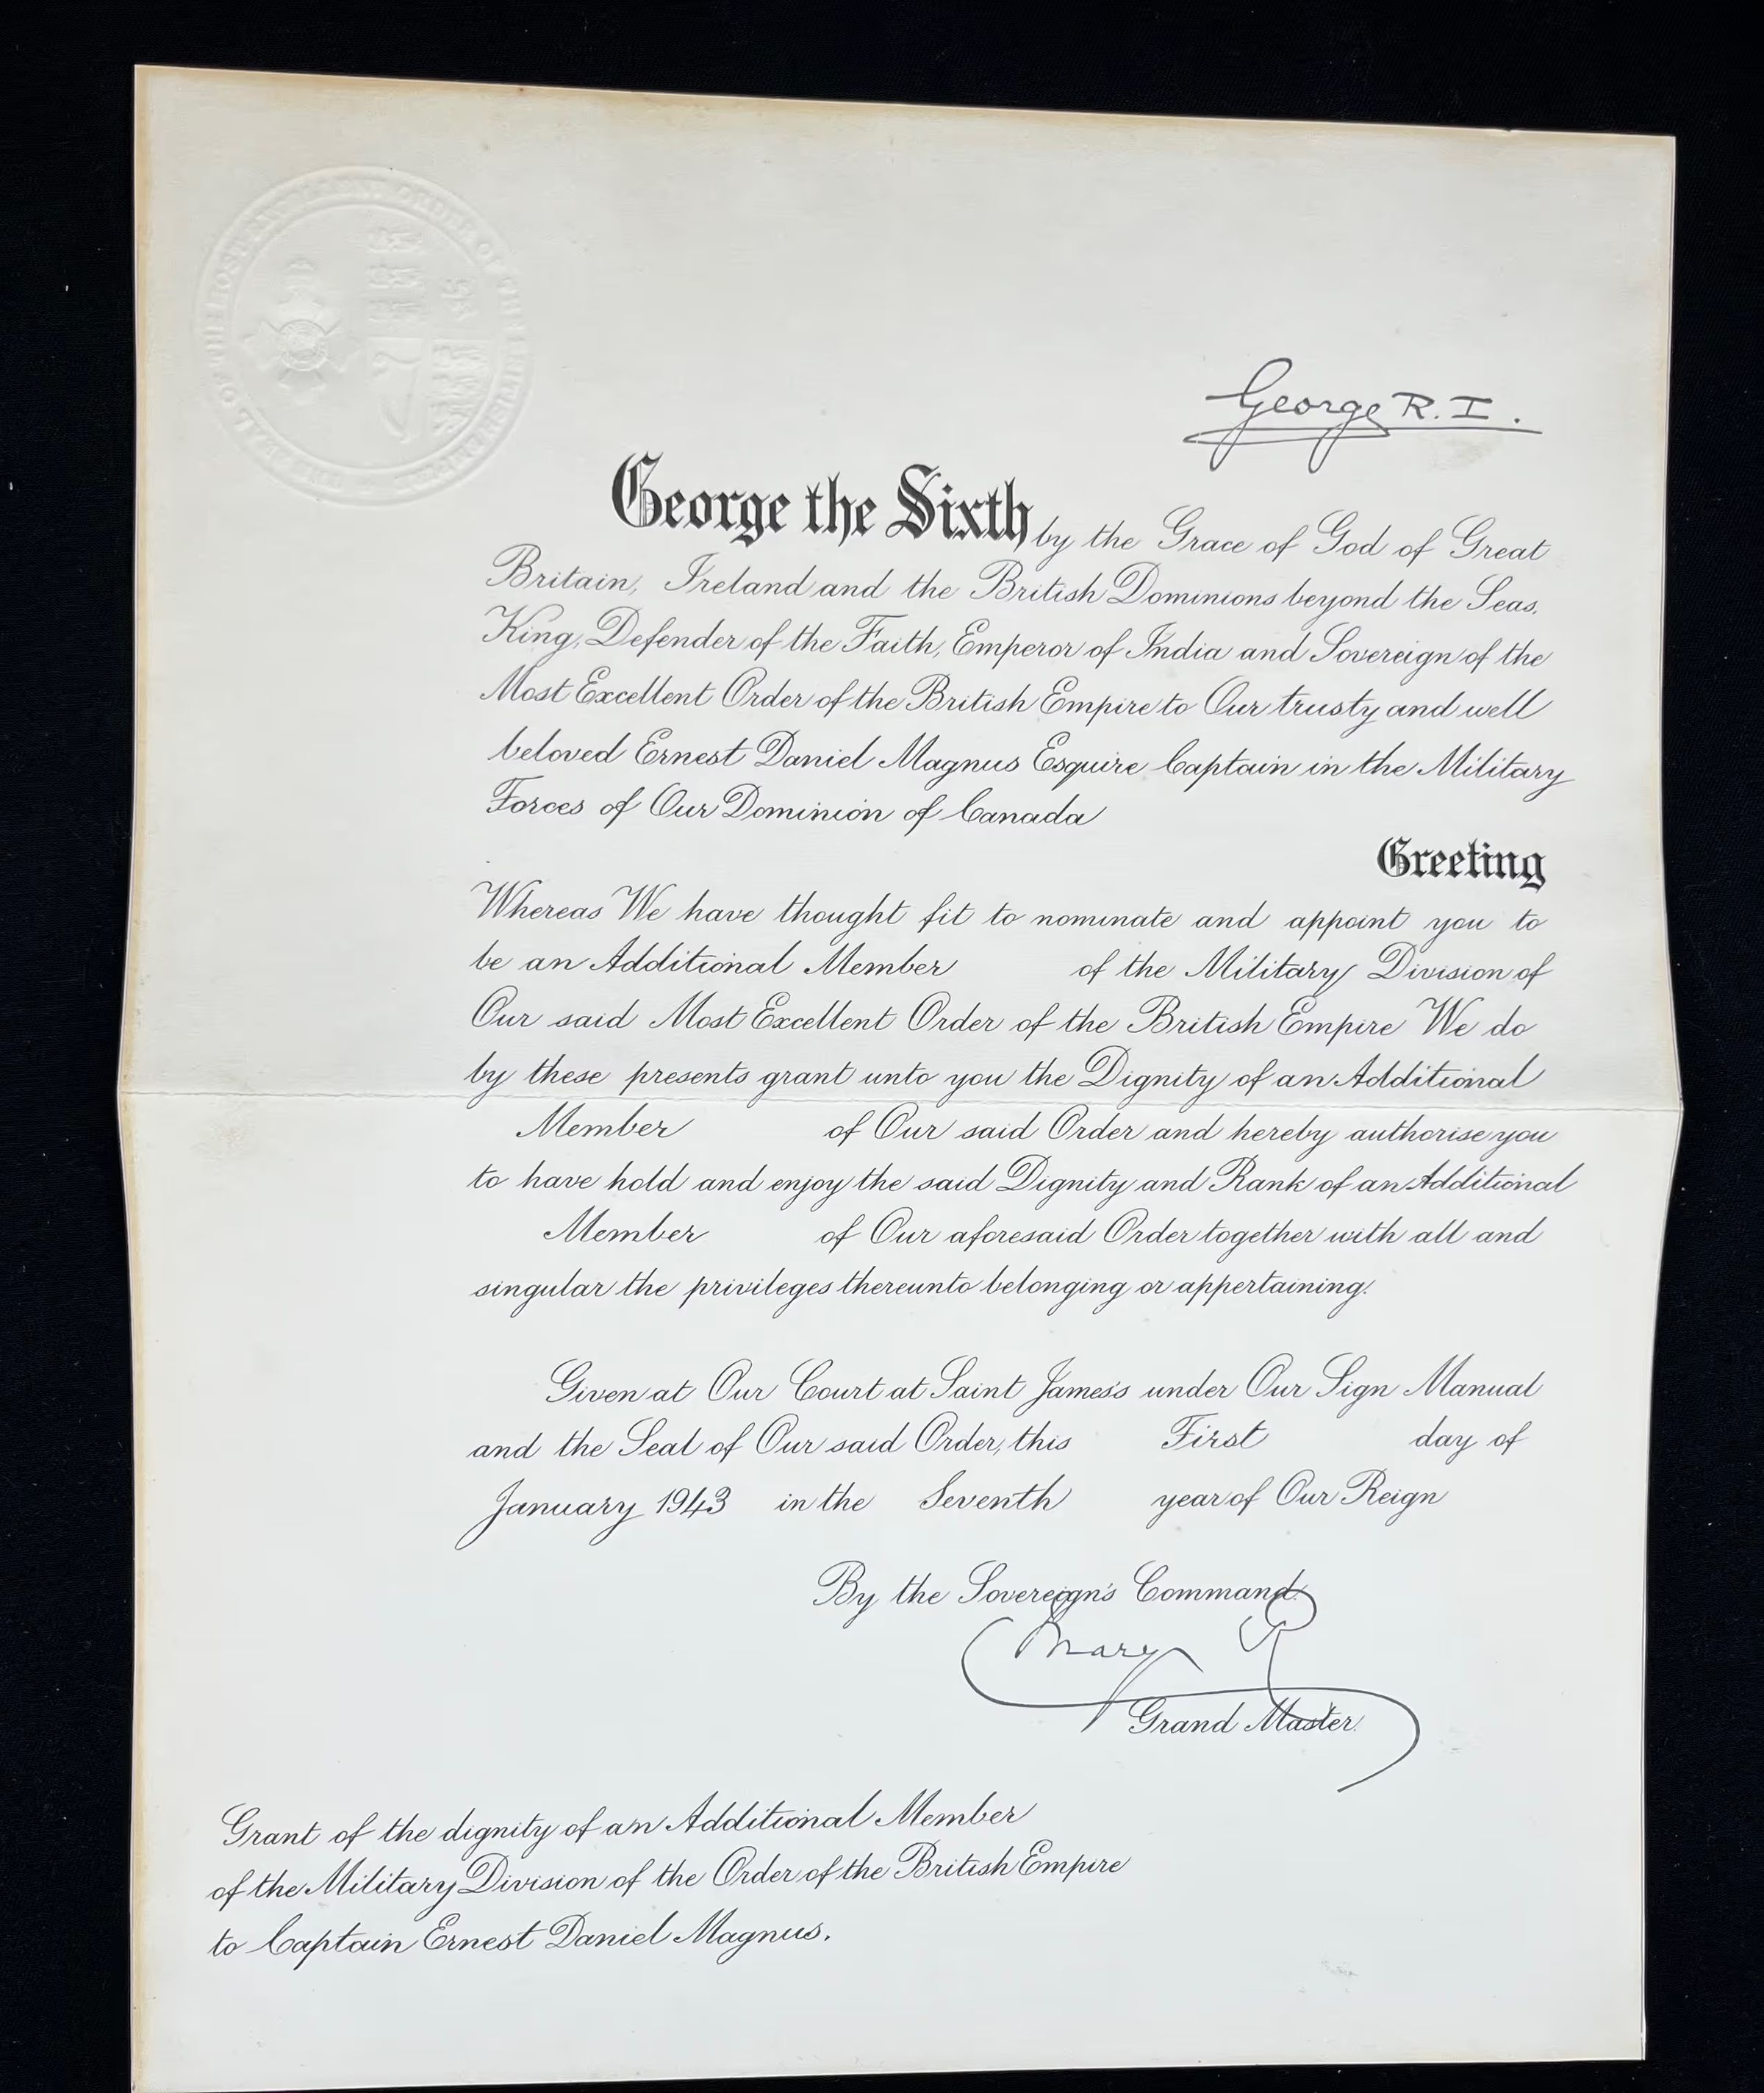 George R. I.
George the Sixth by the Grace of God of Great
Britain, Ireland and the British Dominions beyond the Seas,
King, Defender of the Faith, Emperor of India and Sovereign of the
Most Excellent Order of the British Empire to Our trusty and well
beloved Ernest Daniel Magnus Esquire Captain in the Military
Forces of Our Dominion of Canada
Greeting
Whereas We have thought fit to nominate and appoint you to
be an Additional Member of the Military Division of
Our said Most Excellent Order of the British Empire We do
by these presents grant unto you the Dignity of an Additional
Member of Our said Order and hereby authorise you
to have hold and enjoy the said Dignity and Rank of an Additional
Member of Our aforesaid Order together with all and
singular the privileges thereunto belonging or appertaining.
Given at Our Court at Saint James's under Our Sign Manual
and the Seal of Our said Order, this First day of
January 1943 in the Seventh year of Our Reign
By the Sovereign's Command.
Mary R
Grand Master.
Grant of the dignity of an Additional Member
of the Military Division of the Order of the British Empire
to Captain Ernest Daniel Magnus.